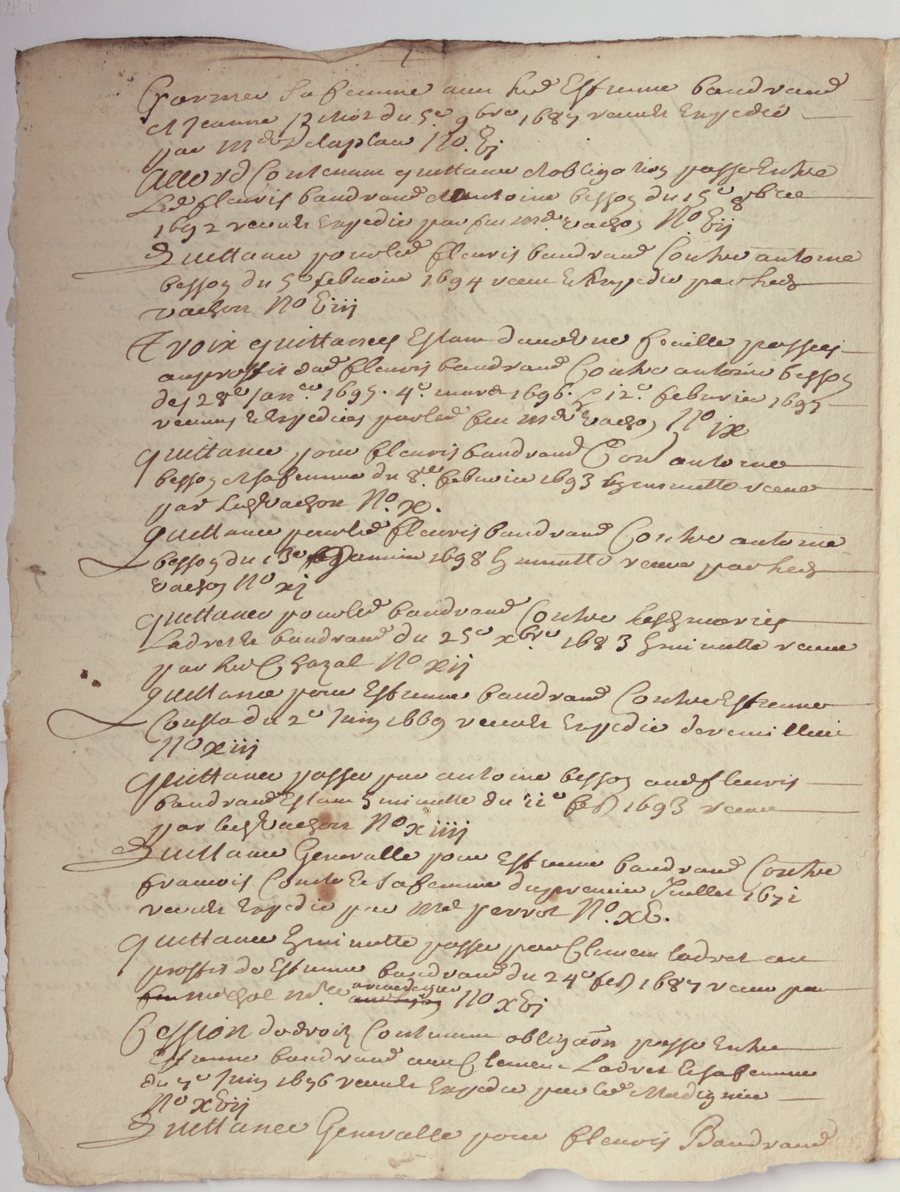 sa femme aud Estienne baudrand
et Jeanne du 5e 9bre 1687 receu et Expedié
par Me No. Vj
Accord Contenant quittance et obligation passé Entre
Led fleuris baudrand et Antoine besson du 15e 8bre
1692 receu et Expedié par feu Me vachon No Vij
Quittance pour led fleuris baudrand Contre antoine
besson du 5e febvrier 1694 receu et Expedié par led
vachon No Viij
Trois quittances Estant dans une feuille passées
au proffit dud fleuris baudrand Contre antoine besson
des 28e Janer 1695. 4e mars 1696. et 12e febvrier 1697
receues et Expediées par led feu Me vachon No ix
quittance pour fleuris baudrand Cont antoine
besson et sa femme du 8e febvrier 1693 En minutte receue
par led vachon No. x.
Quittance pour led fleuris baudrand Contre antoine
besson du 13e Janvier 1698 En minutte receue par led
vachon No xj
quittance pour led baudrand Contre les mariés
Ladret et baudrand du 25e xbre 1683 En minutte receue
par Chazal No xij
quittance pour Estienne baudrand Contre Estienne
Consta du 2e Juin 1669 receu et Expedié
No xiij
quittance passée par antoine besson aud fleuris
baudrand Estant En minutte du 11e feb 1693 receue
par led vachon No xiiij
Quittance Generalle pour Estienne baudrand Contre
francois Conte et sa femme du premier Juillet 1671
receu et Expedié par Me perrot No. xV.
quittance En minutte passée par Clement ladret au
proffit de Estienne baudrand du 24e feb 1687 receue par
No xVj
Cession de droits Contenant obligaon passé Entre
Estienne baudrand avec Clement Ladret et sa femme
du 7e Juin 1676 receu et Expedié par led
No xVij
Quittance Generalle pour fleuris Baudrand